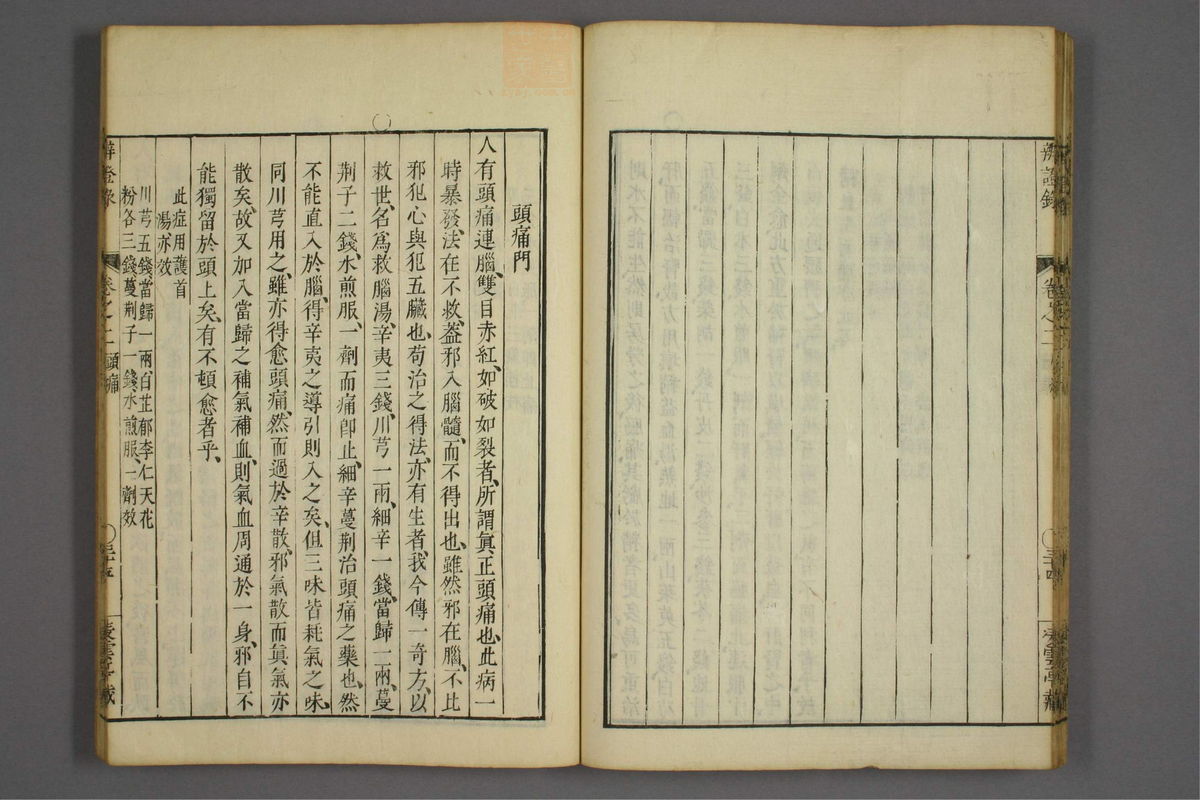 頭痛門
人有頭痛連腦、雙目赤紅、如破如裂者、所謂眞正頭痛也、此病一
時暴發、法在不救、葢邪入腦髓、而不得出也、雖然邪在腦、不比
邪犯心與犯五臟也、苟治之得法、亦有生者、我今傳一奇方、以
救世、名爲救腦湯、辛夷三錢、川芎一兩、細辛一錢、當歸一兩、蔓
荆子二錢、水煎服、一劑而痛卽止、細辛蔓荆治頭痛之藥也、然
不能直入於腦、得辛夷之導引則入之矣、但三味皆耗氣之味、
同川芎用之、雖亦得愈頭痛、然而過於辛散、邪氣散而眞氣亦
散矣、故又加入當歸之補氣補血、則氣血周通於一身、邪自不
能獨留於頭上矣、有不頓愈者乎、
此症用護首
湯亦效
川芎五錢當歸一兩白芷郁李仁天花
粉各三錢蔓荆子一錢水煎服、一劑效
卷之二 頭痛
三十五
辨證錄
卷之二
三十四